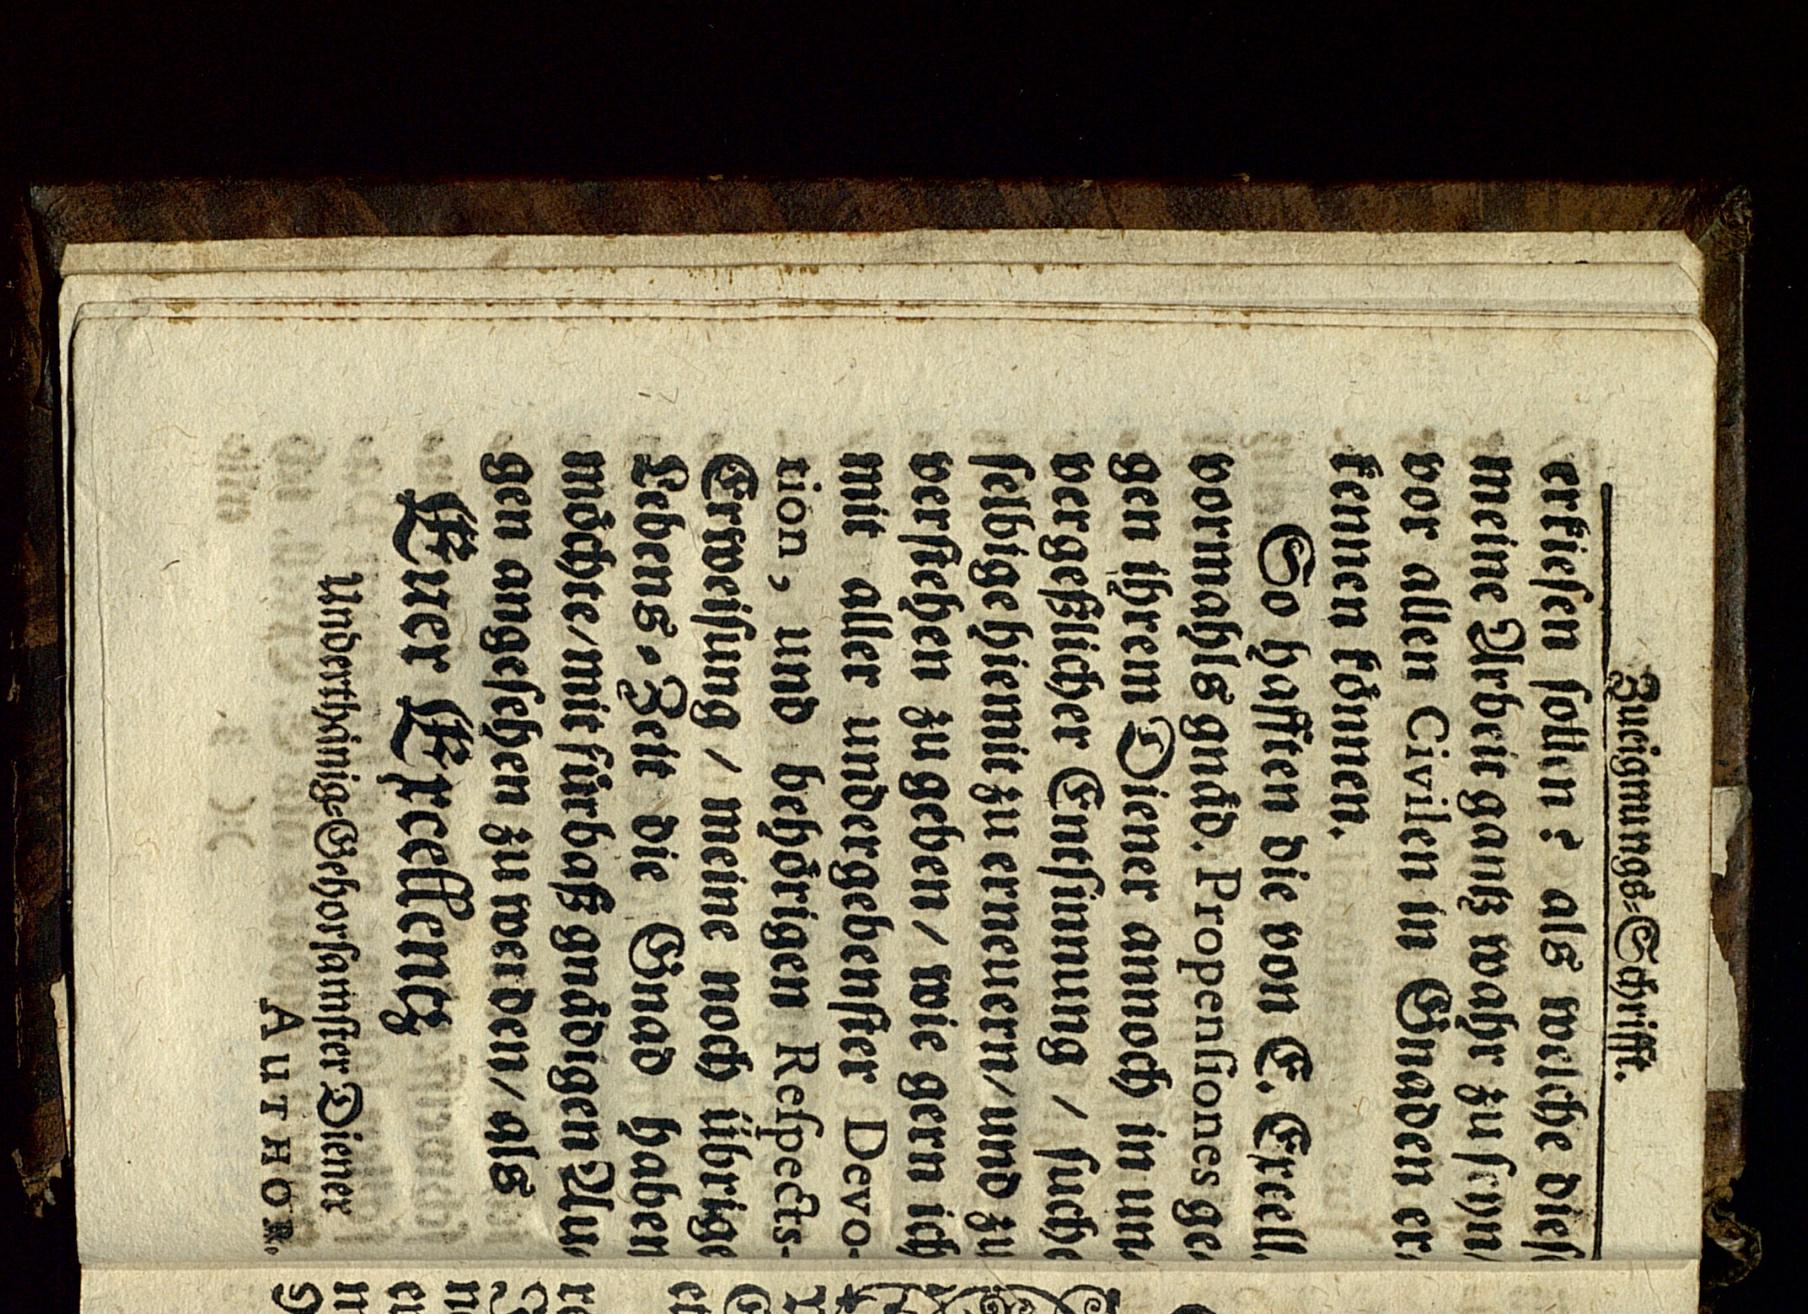 Zueignungs-Schrifft.
erkiesen sollen? als welche dies
meine Arbeit gantz wahr zu seyn/
vor allen Civilen in Gnaden er
kennen können.
So hafften die von E. Excell
vormahls gnäd. Propensiones ge
gen ihrem Diener annoch in un
vergeßlicher Entsinnung / suche
selbige hiemit zu erneuern/ und zu
verstehen zu geben/ wie gern ich
mit aller undergebenster Devo-
tion, und behörigen Respects-
Erweisung / meine noch übrige
Lebens-Zeit die Gnad haben
möchte/ mit fürbaß gnädigen Au
gen angesehen zu werden/ als
Euer Excellentz
Underthänig-Gehorsamster Diener
AUTHOR.